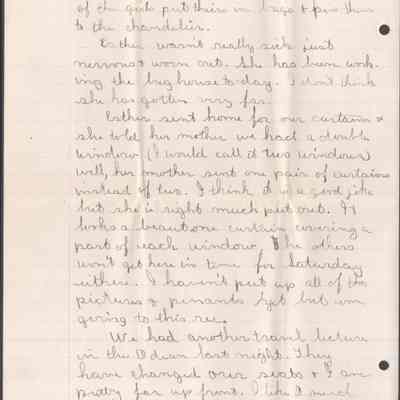 of the girls put theirs in bags & pin them
to the chandelier.
Esther wasn't really sick just
nervous & worn out. She has been work-
ing the big house to-day. I don't think
she has gotten very far.
Esther sent home for our curtains &
she told her mother we had a double
window (I would call it two windows)
well, her mother sent one pair of curtains
instead of two. I think it is a good joke
but she is right much put out. It
looks a beaut one curtain covering a
part of each window. The others
won't get here in time for Saturday
either. I haven't put up all of the
pictures & penants yet but am
going to this eve.
We had another travel lecture
in the Odeon last night. They
have changed our seats & I am
pretty far up front. I like it much